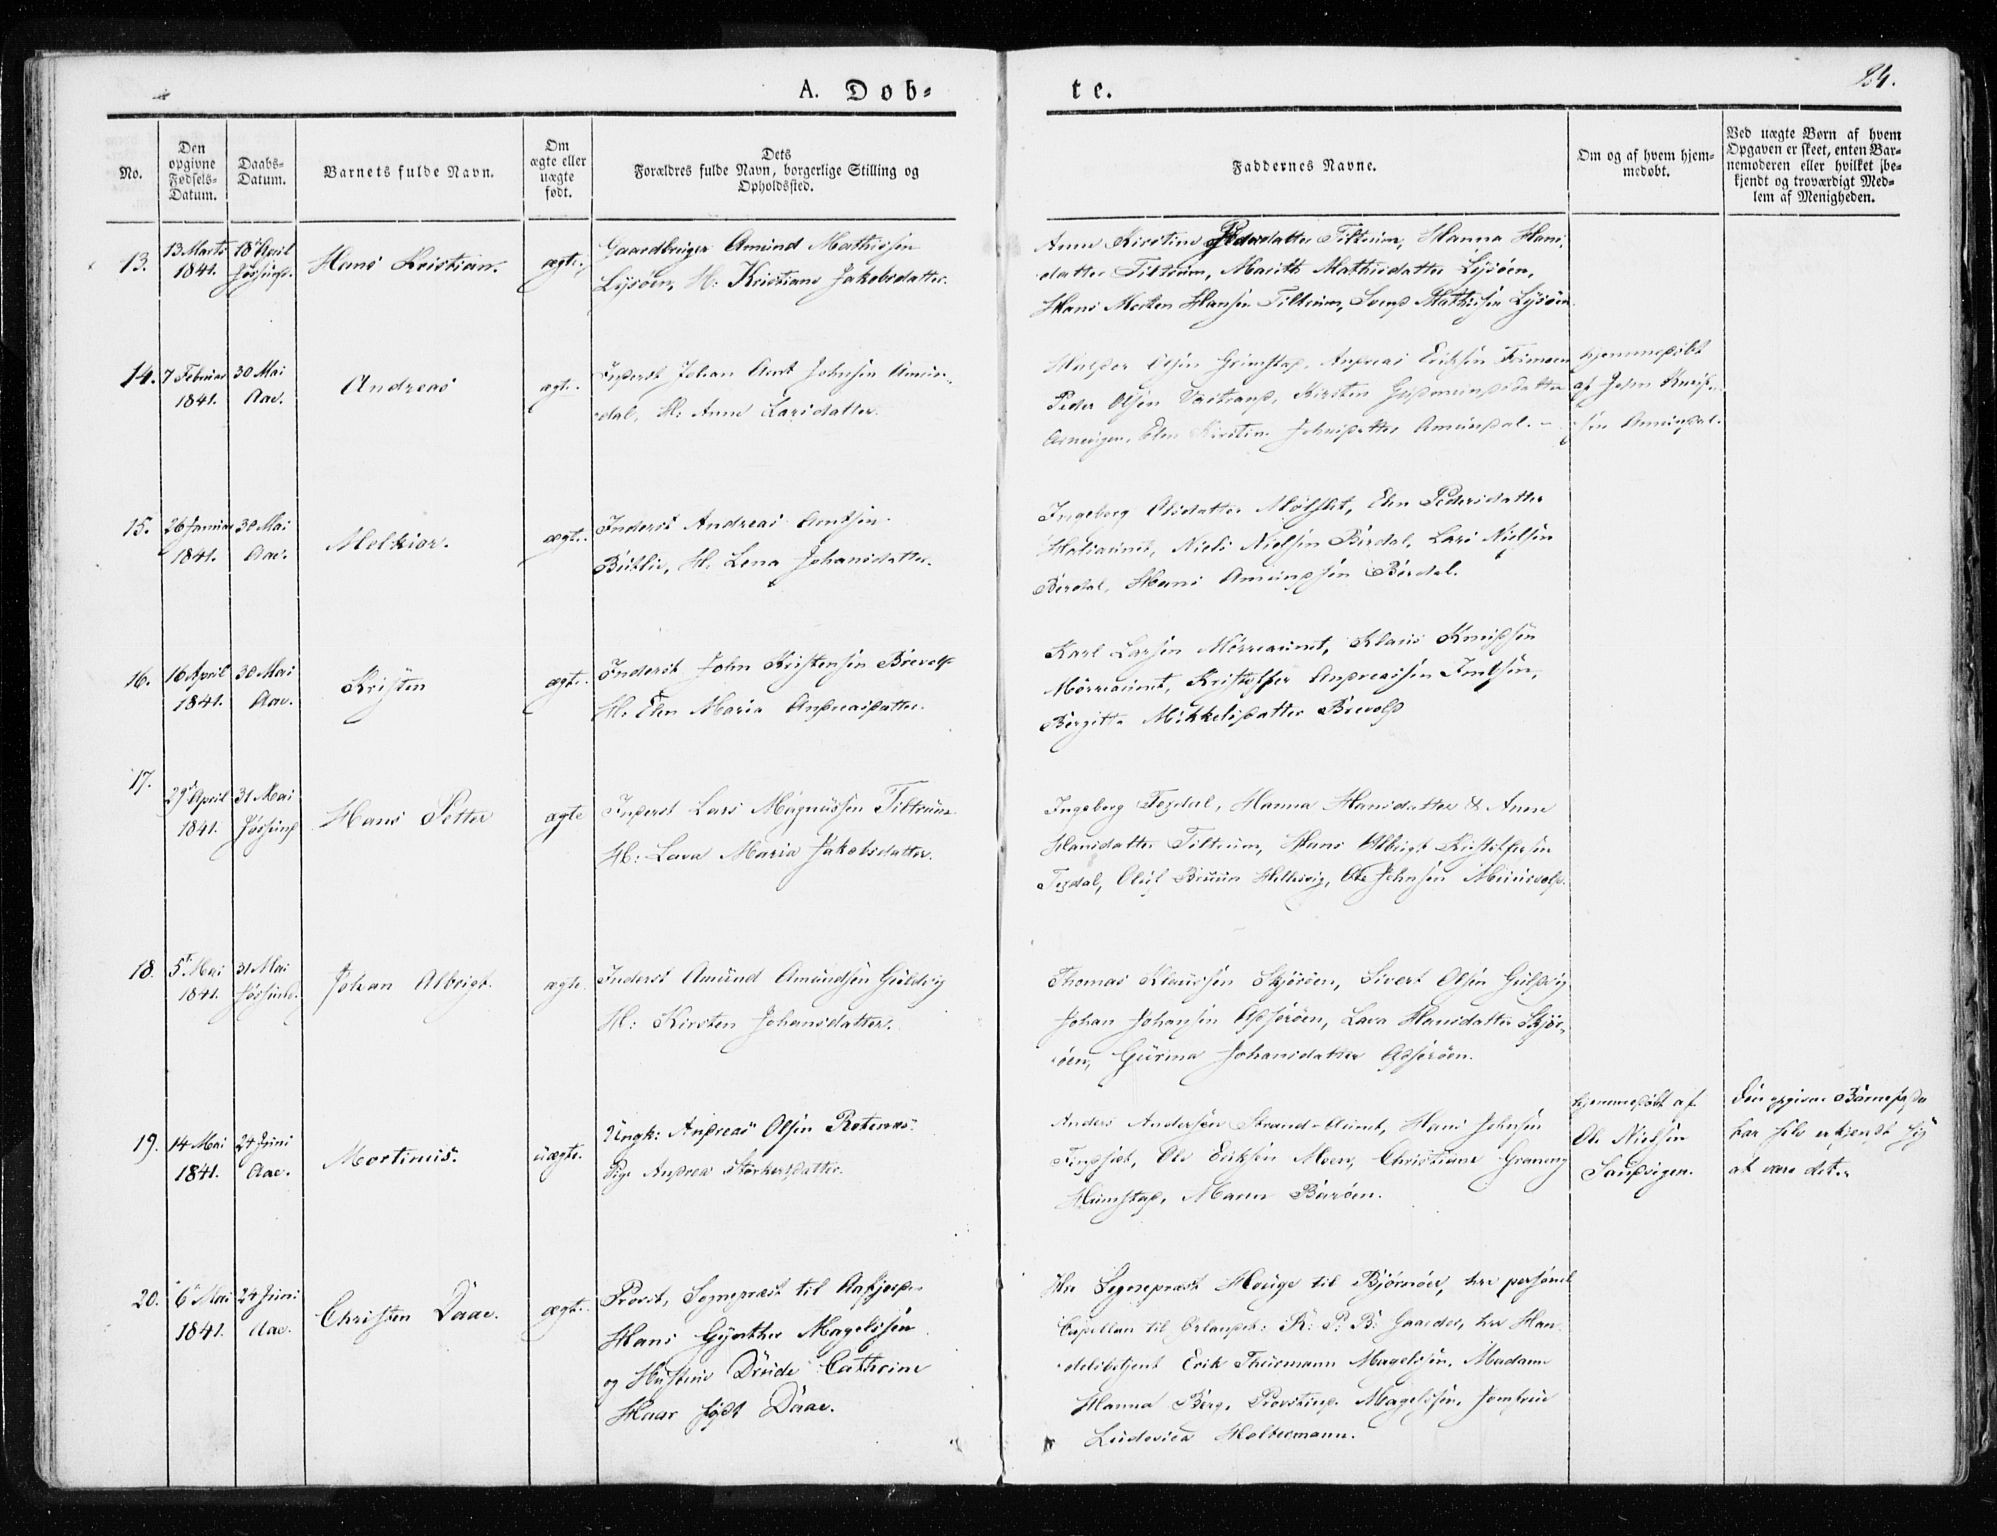 A. Døb-
te.
24.
No.
Den opgivne Fødsels-Datum.
Daabs-Datum.
Barnets fulde Navn.
Om ægte eller uægte født.
Dets
Forældres fulde Navn, borgerlige Stilling og
Opholdssted.
Faddernes Navne.
Om og af hvem hjem-
medøbt.
Ved uægte Børn af hvem
Opgaven er skeet, enten Bar-
nemoderen eller hvilket be-
kjendt og troværdigt Med-
lem af Menigheden.
13.
13 Marts
1841.
18 April
Jøssund.
Hans Kristian.
ægte.
Gaardbruger Amund Mathissen
Lysøen, H: Kristiane Jakobsdatter.
Anne Kirstine Pedersdatter Tiltrum, Hanna Hans-
datter Tiltrum, Marith Mathisdatter Lysøen,
Hans Morten Hansen Tiltrum, Svend Mathissen Lysøen
14.
7 Februar
1841.
30 Mai
Aae.
Andreas
ægte.
Inderst Johan Arnt Johnsen Amun-
dal, H: Anne Larsdatter.
Olsen Grimstad, Andreas Eriksen
Peder Olsen Kirsten Gudmundsdatter
Elen Kirstine Johnsdatter Amundal.
hjemmedøbt
af John
Amundal.
15.
26 Januar
1841.
30 Mai
Aae.
Melkior.
ægte.
Inderst Andreas Arntsen
H. Lena Johansdatter.
Ingeborg Olsdatter Elen Pedersdatter
Niels Nielsen Bardal, Lars Nielsen
Hans Amundsen
16.
16 April
1841.
30 Mai
Aae.
Kristen
ægte.
Inderst John Kristensen Brevold
H: Elen Maria Andreasdatter.
Karl Larsen Mørreaunet, Klaus Knudsen
Mørreaunet, Kristoffer Andreassen
Birgitte Mikkelsdatter Brevold
17.
29 April
1841.
31 Mai
Jøssund
Hans Petter
ægte
Inderst Lars Magnussen Tiltrum
H: Lava Maria Jakobsdatter.
Ingeborg Texdal, Hanna Hansdatter & Anne
Hansdatter Tiltrum, Hans Albrigt Kristoffersen
Texdal, Oluf Bruun Hellesvig, Ole Johnsen
18.
5 Mai
1841.
31 Mai
Jøssund.
Johan Albrigt.
ægte.
Inderst Amund Amundsen Guldvig
H: Kirsten Johansdatter.
Thomas Klaussen Skjørøen, Sivert Olsen Guldvig
Johan Johansen Asserøen, Lava Hansdatter Skjør-
øen, Gurina Johansdatter Asserøen.
19.
14 Mai
1841.
24 Juni
Aae.
Mortinus.
uægte.
Ungk: Andreas Olsen
Pige Andrea Størkersdatter.
Anders Andersen Strand-Aunet, Hans Johnsen
Ole Eriksen Moen, Christiane
Maren
hjemmedøbt af
Ole Nielsen
Sandvigen.
Den opgivne Barnefader
har selv erkjendt sig
at være det.
20.
6 Mai
1841.
24 Juni
Aae.
Christen Daae.
ægte.
Provst, Sognepræst til Aafjord
Hans Gynther Magelssen
og Hustrue Drude Cathrine
Haar født Daae.
Hr Sognepræst Hauge til Bjørnøer, hr personel
Capellan til Ørlandet: K: P: B: Gaarder, hr Han-
delsbetjent Erik Thurmann Magelssen, Madame
Hanna Berg, Provstinde Magelssen, Jomfrue
Ludovica Holtermann.